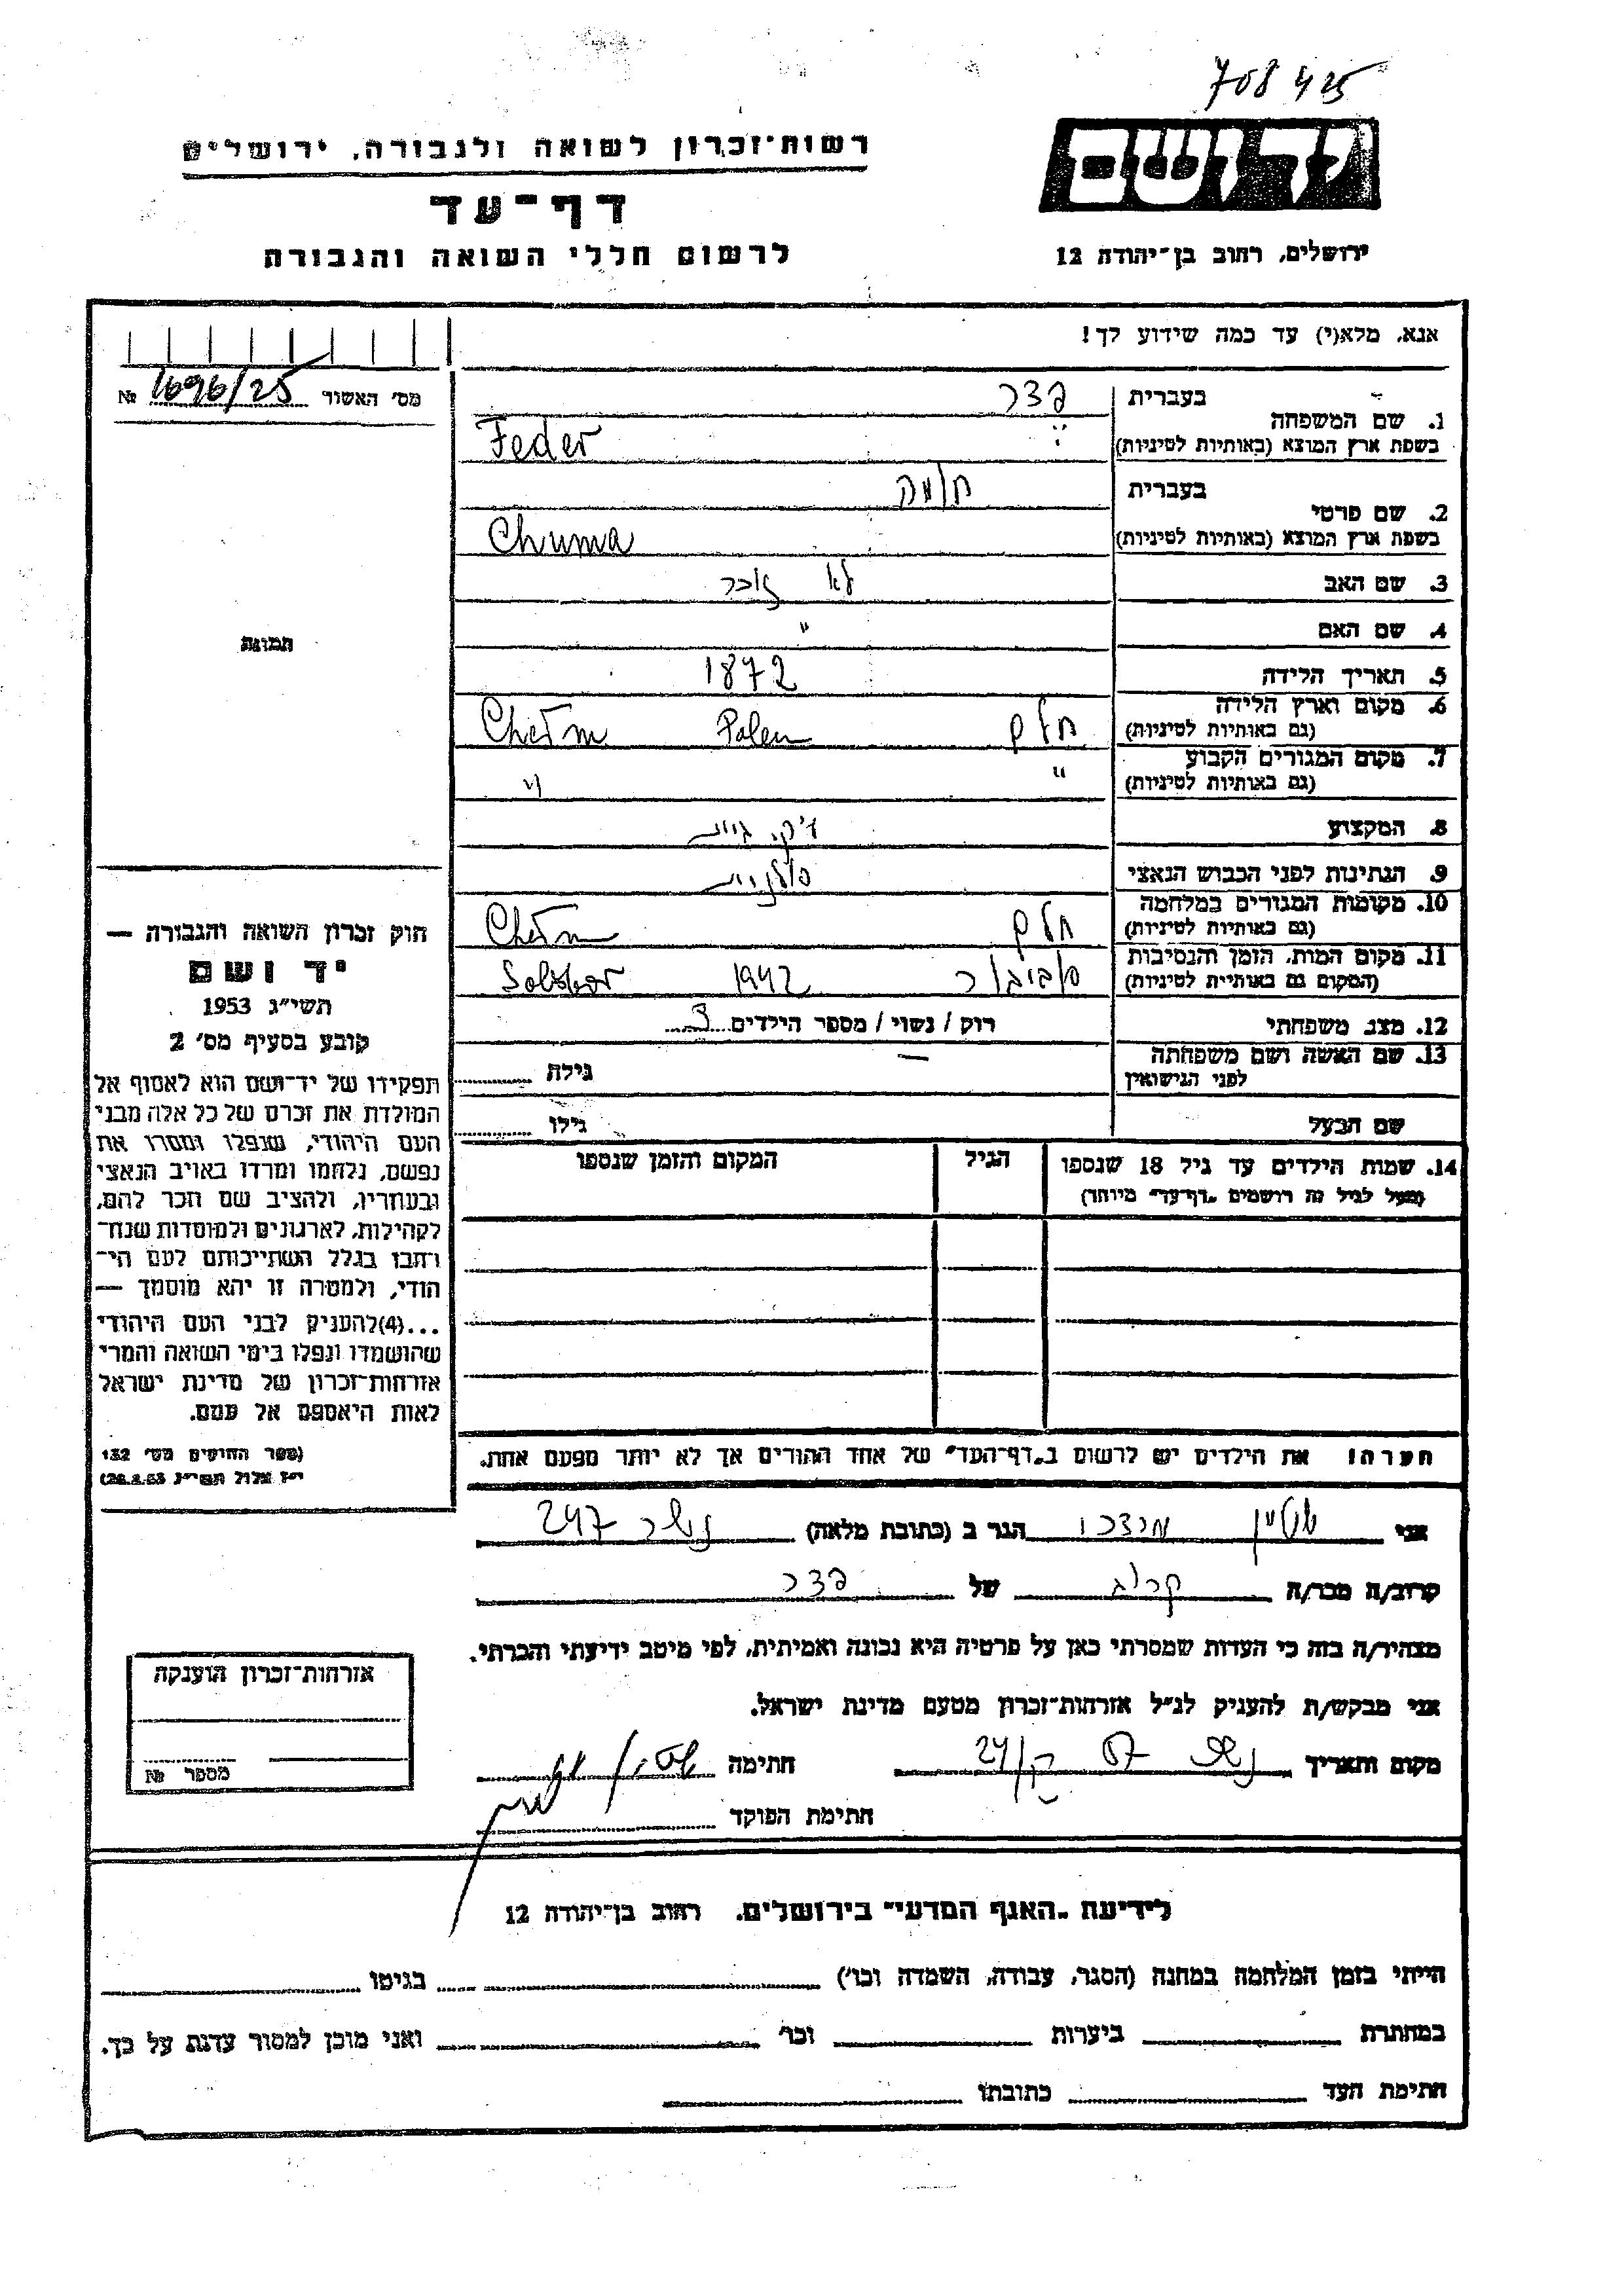 708425
רשות־זכרון לשואה ולגבורה, ירושלים
יד ושם
דף־עד
לרשום חללי השואה והגבורה
ירושלים, רחוב בן־יהודה 12
אנא, מלא(י) עד כמה שידוע לך!
מס׳ האשור № 1696/25
בעברית פדר
1. שם המשפחה
בשפת ארץ המוצא (באותיות לטיניות) Feder
בעברית חומה
2. שם פרטי
בשפת ארץ המוצא (באותיות לטיניות) Chuma
3. שם האב לא זוכר
4. שם האם "
תמונה
5. תאריך הלידה 1872
6. מקום וארץ הלידה
(גם באותיות לטיניות) חלם Polen Chełm
7. מקום המגורים הקבוע
(גם באותיות לטיניות) " "
8. המקצוע
9. הנתינות לפני הכבוש הנאצי פולנית
10. מקומות המגורים במלחמה
(גם באותיות לטיניות) חלם Chełm
11. מקום המות, הזמן והנסיבות
(המקום גם באותיית לטיניות) סוביבור 1942
12. מצב משפחתי רוק / נשוי / מספר הילדים 3
13. שם האשה ושם משפחתה
לפני הנישואין — גילה
שם הבעל גילו
14. שמות הילדים עד גיל 18 שנספו הגיל המקום והזמן שנספו
(מעל לגיל זה רושמים „דף־עד״ מיוחד)
חוק זכרון השואה והגבורה —
יד ושם
תשי״ג 1953
קובע בסעיף מס׳ 2
תפקידו של יד־ושם הוא לאסוף אל
המולדת את זכרם של כל אלה מבני
העם היהודי, שנפלו ומסרו את
נפשם, נלחמו ומרדו באויב הנאצי
ובעוזריו, ולהציב שם וזכר להם,
לקהילות, לארגונים ולמוסדות שנח־
רחבו בגלל השתייכותם לעם הי־
הודי, ולמטרה זו יהא מוסמך —
...(4)להעניק לבני העם היהודי
שהושמדו ונפלו בימי השואה והמרי
אזרחות־זכרון של מדינת ישראל
לאות היאספם אל עמם.
(ספר החוקים מס׳ 132
י״ז אלול תשי״ג 28.8.53)
הערה! את הילדים יש לרשום ב„דף־העד״ של אחד ההורים אך לא יותר מפעם אחת.
אני מרדכי הגר ב (כתובת מלאה) נשר 247
קרוב/ה מכר/ה קרוב של פדר
מצהיר/ה בזה כי העדות שמסרתי כאן על פרטיה היא נכונה ואמיתית, לפי מיטב ידיעתי והכרתי.
אני מבקש/ת להעניק לנ״ל אזרחות־זכרון מטעם מדינת ישראל.
מקום ותאריך חתימה
חתימת הפוקד
אזרחות־זכרון הוענקה
מספר №
לידיעת „האגף המדעי״ בירושלים, רחוב בן־יהודה 12
הייתי בזמן המלחמה במחנה (הסגר, עבודה, השמדה וכו׳) בגיטו
במחתרת ביערות וכו׳ ואני מוכן למסור עדות על כך.
חתימת העד כתובתו